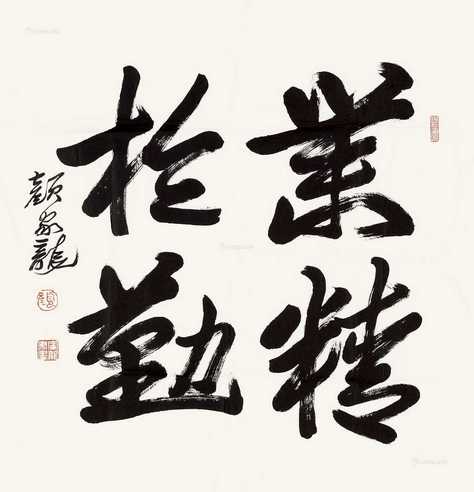 業精
於勤
顏家龍